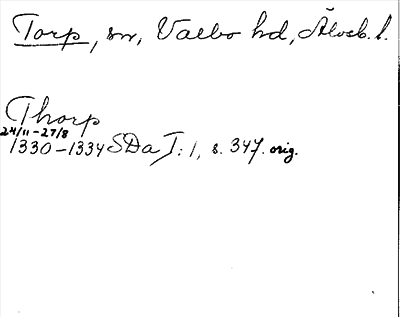 Torp, sn, Valbo hd, Älvsb. l.
Thorp
24/11-27/8
1330-1334 SDa I: 1, s. 347. orig.